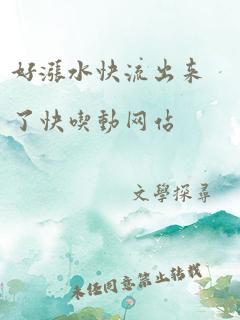 好漲水快流出来
了快喫動网佔
文學探尋
未经同意禁止转载